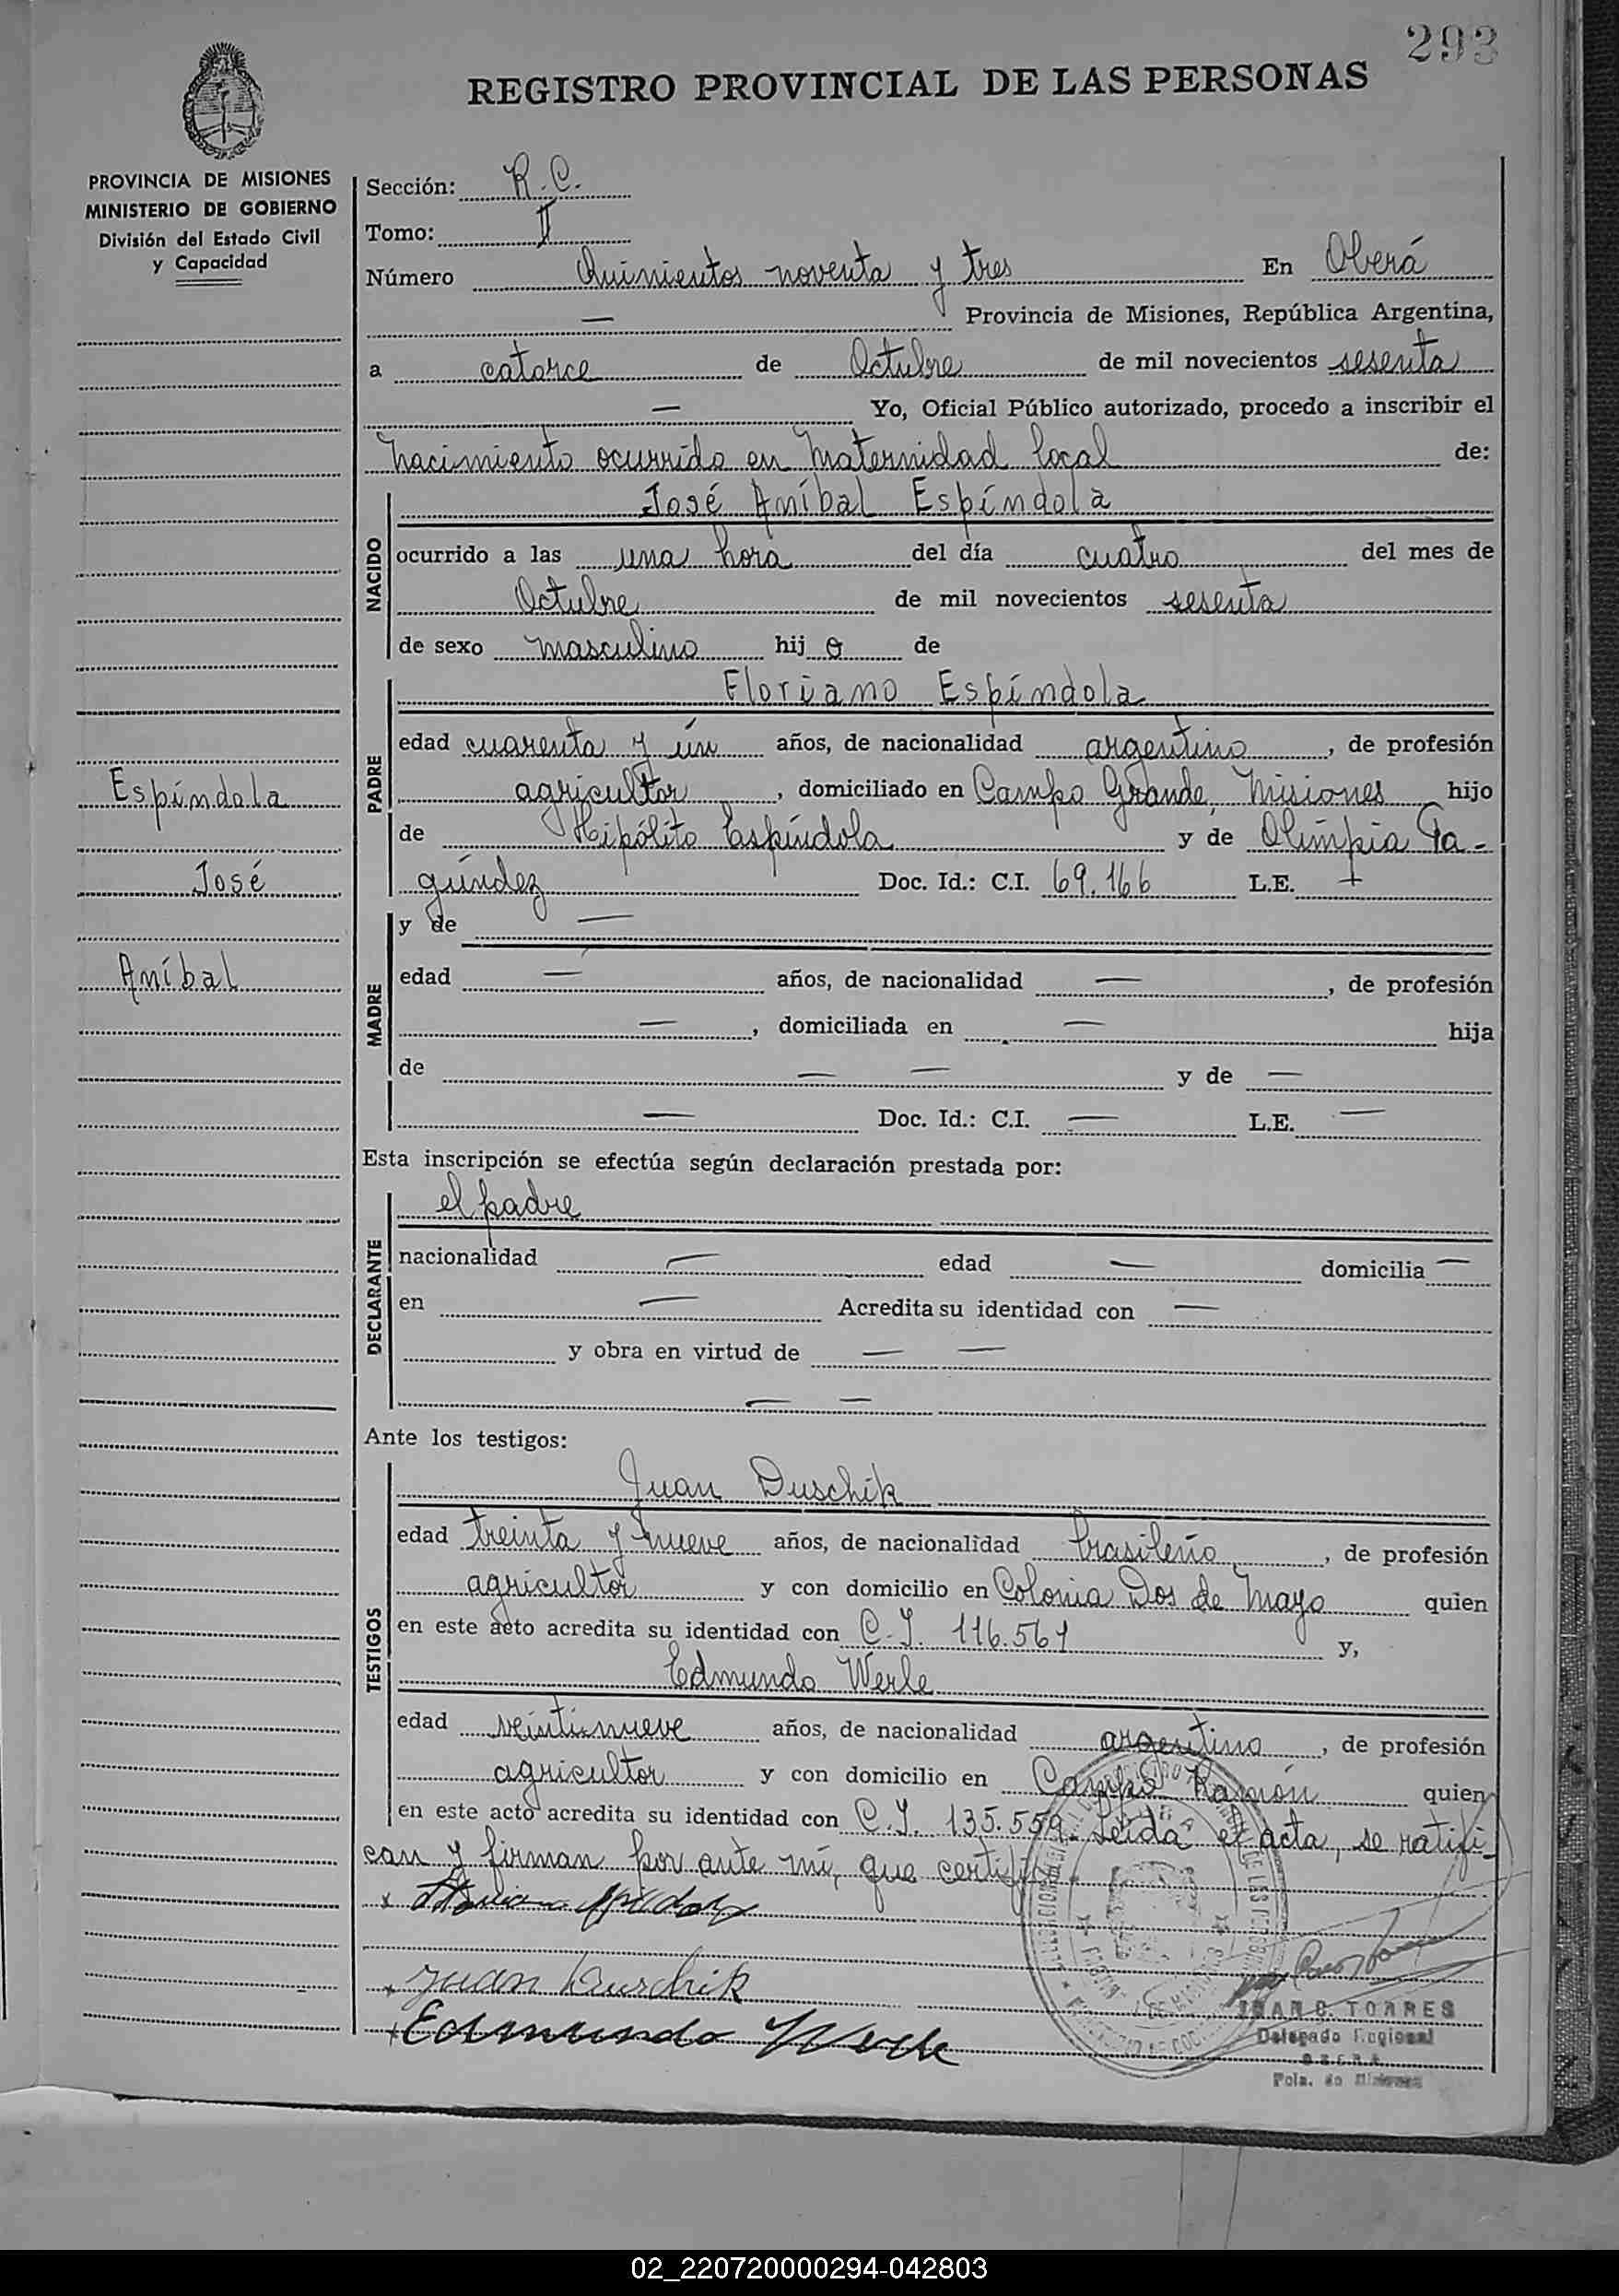 293
REGISTRO PROVINCIAL DE LAS PERSONAS
PROVINCIA DE MISIONES
MINISTERIO DE GOBIERNO
División del Estado Civil
y Capacidad
Sección: R.C.
Tomo: II
Número Quinientos noventa y tres En Oberá
— Provincia de Misiones, República Argentina,
a catorce de Octubre de mil novecientos sesenta
— Yo, Oficial Público autorizado, procedo a inscribir el
nacimiento ocurrido en Maternidad local de:
NACIDO
José Aníbal Espíndola
ocurrido a las una hora del día cuatro del mes de
Octubre de mil novecientos sesenta
de sexo masculino hij o de
PADRE
Floriano Espíndola
edad cuarenta y ún años, de nacionalidad argentino, de profesión
agricultor, domiciliado en Campo Grande, Misiones hijo
de Hipólito Espíndola y de Olímpia Fa-
gúndez Doc. Id.: C.I. 69.166 L.E. +
Espíndola
José
Aníbal
MADRE
y de —
edad — años, de nacionalidad —, de profesión
—, domiciliada en — hija
de — — y de —
— Doc. Id.: C.I. — L.E. —
Esta inscripción se efectúa según declaración prestada por:
DECLARANTE
el padre
nacionalidad — edad — domicilia —
en — Acredita su identidad con —
y obra en virtud de — —
— —
Ante los testigos:
TESTIGOS
Juan Duschik
edad treinta y nueve años, de nacionalidad brasileño, de profesión
agricultor y con domicilio en Colonia Dos de Mayo quien
en este acto acredita su identidad con C.I. 116.561 y,
Edmundo Werle
edad veintinueve años, de nacionalidad argentino, de profesión
agricultor y con domicilio en Campo Ramón quien
en este acto acredita su identidad con C.I. 135.559. Leída el acta, se ratifi-
can y firman por ante mí, que certifico.
x
x Juan Duschik
x Edmundo Werle
TORRES
Delegado Regional
OBERA
Pcia. de Misiones
02_220720000294-042803